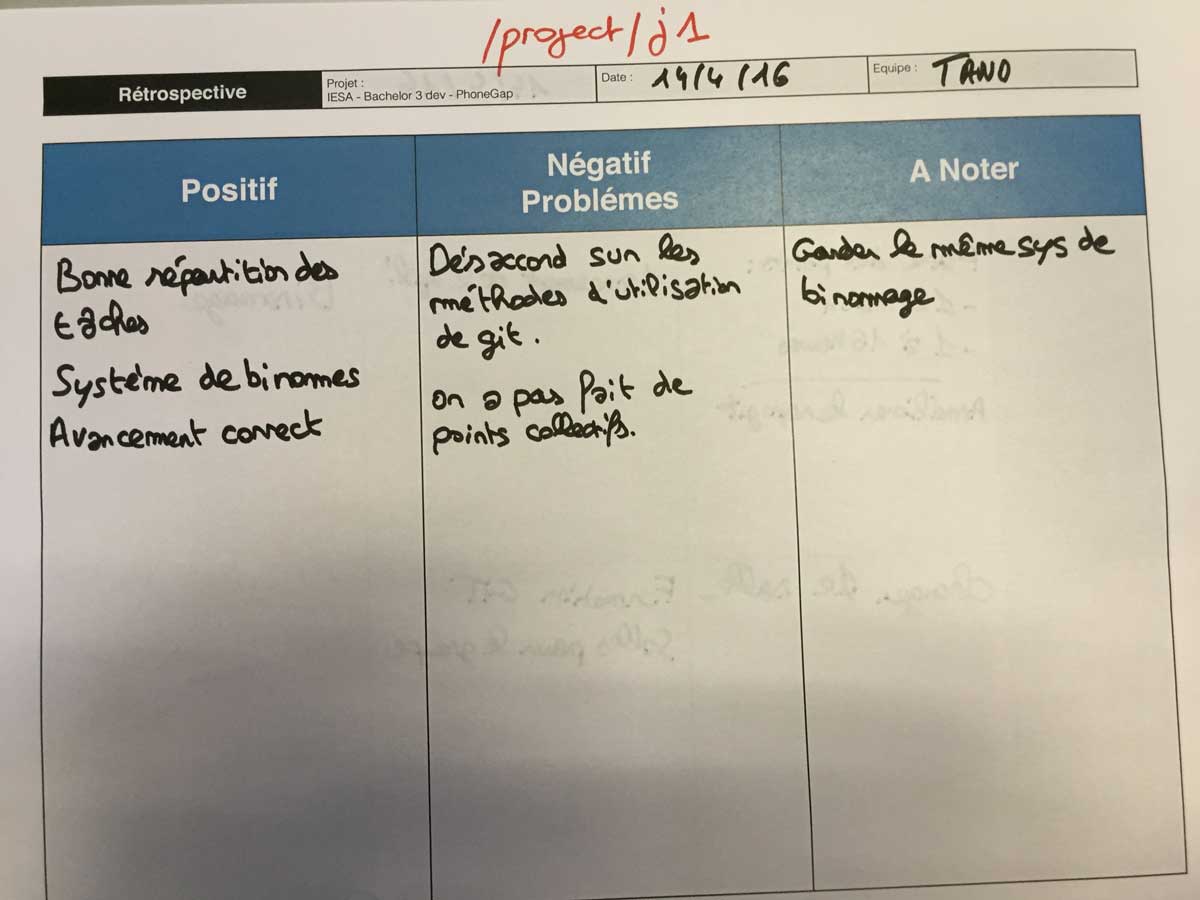 /project/j1
Rétrospective
Projet :
IESA - Bachelor 3 dev - PhoneGap
Date : 14/4/16
Equipe : TANO
Positif
Négatif
Problémes
A Noter
Bonne répartition des
tâches
Système de binomes
Avancement correct
Désaccord sur les
méthodes d'utilisation
de git.
on a pas fait de
points collectifs.
Garder le même sys de
binommage